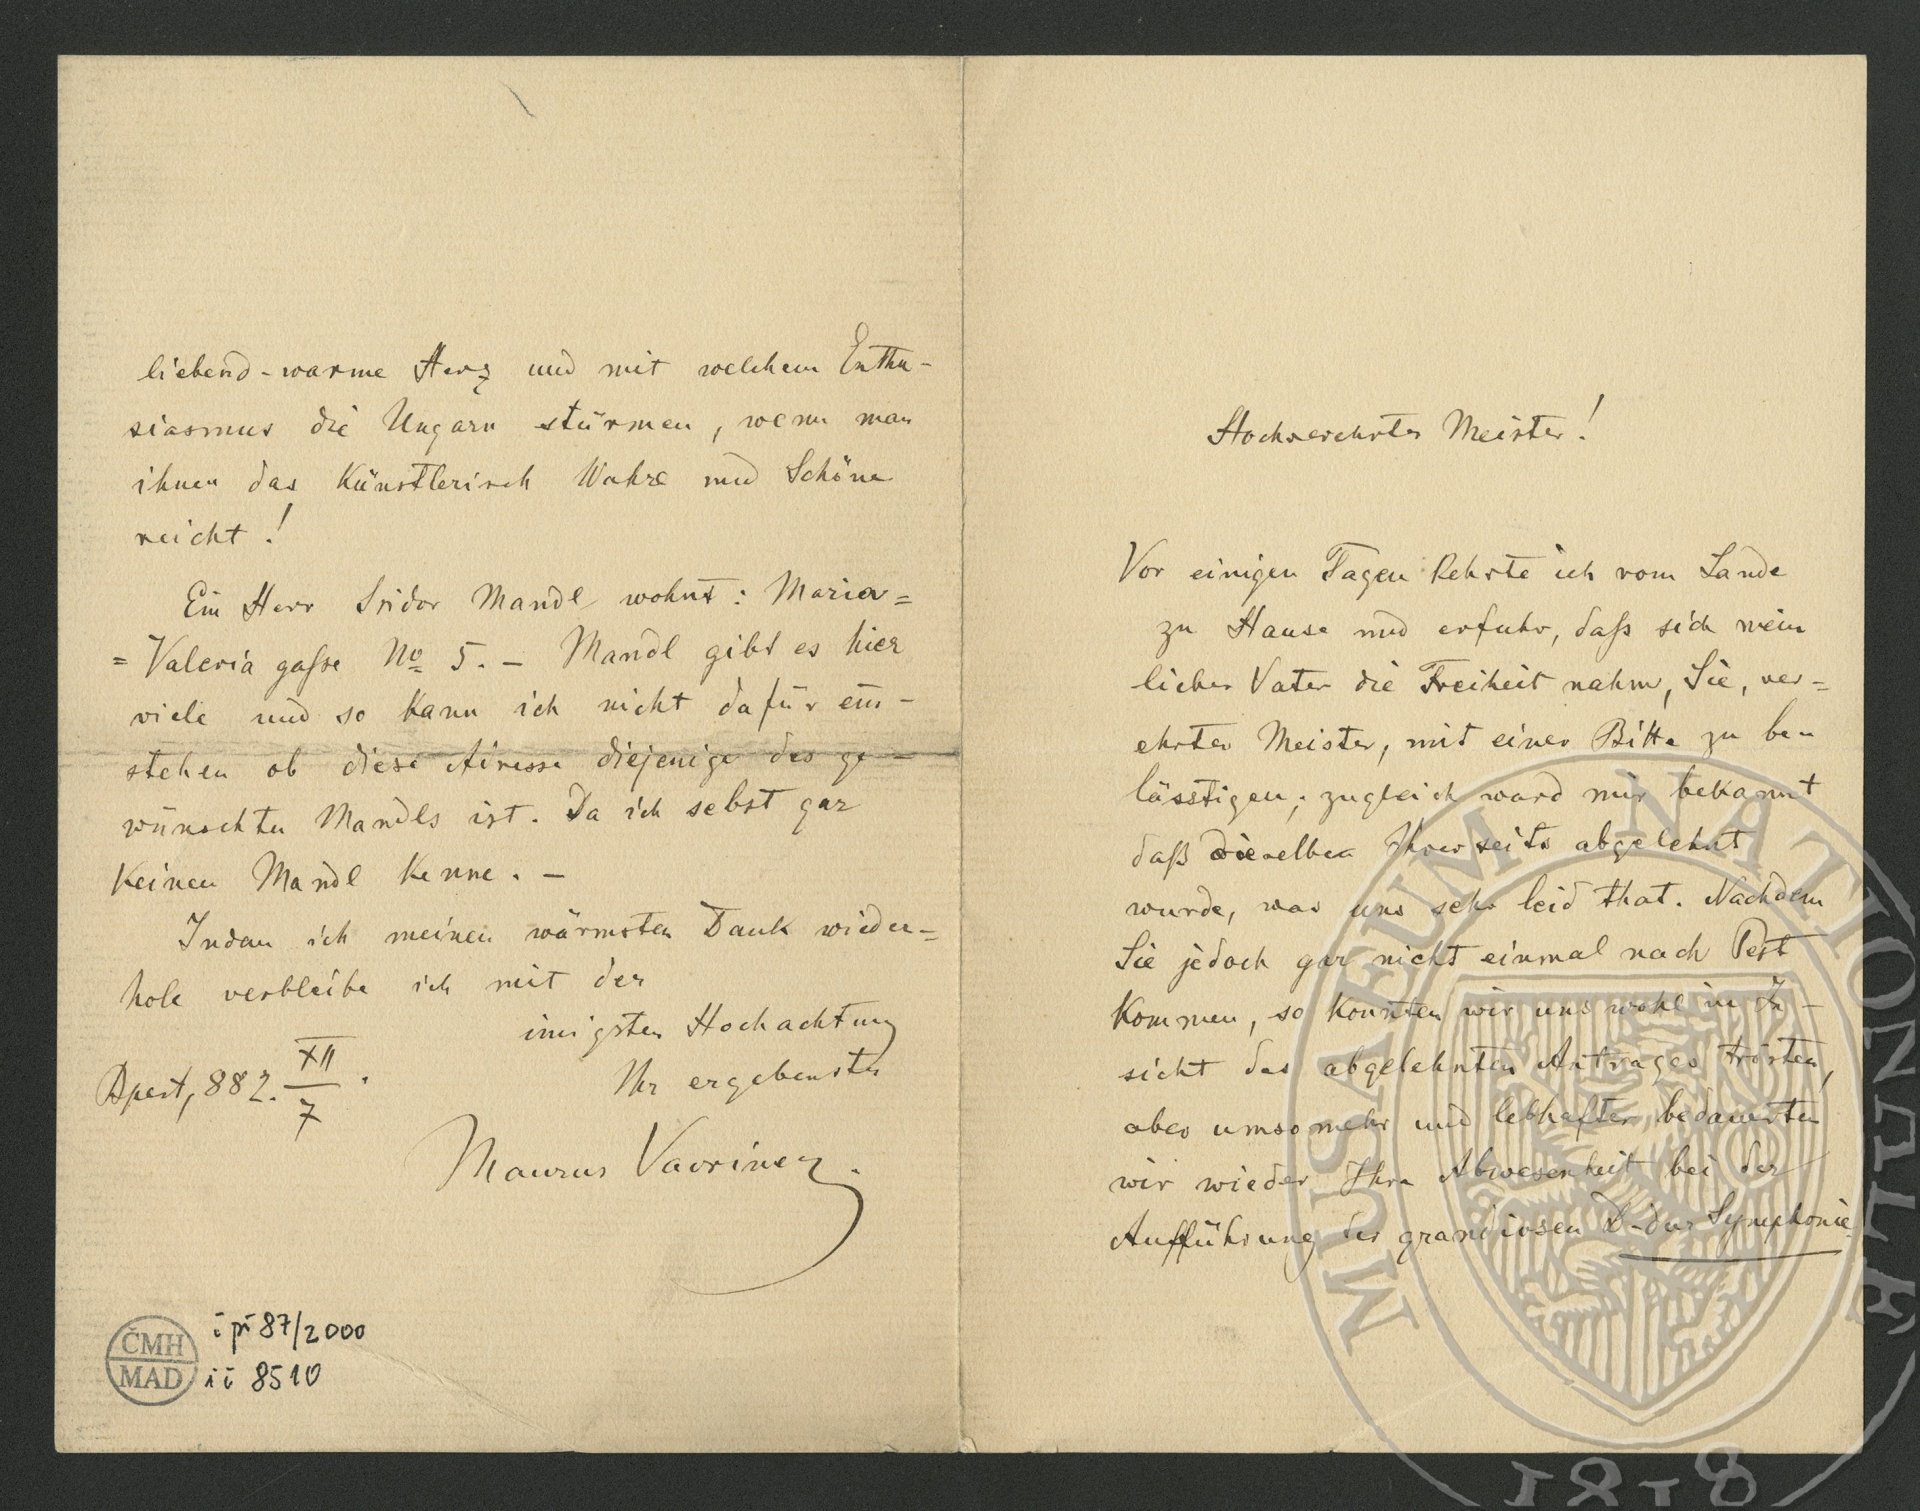 liebend-warme Herz und mit welchem Enthu-
siasmus die Ungarn stürmen, wenn man
ihnen das Künstlerisch Wahre und Schöne
reicht!
Ein Herr Isidor Mandl wohnt: Maria=
=Valeria gaße No 5. – Mandl gibt es hier
viele und so kann ich nicht dafür ein-
stehen ob diese Adresse diejenige des ge-
wünschten Mandls ist. Da ich selbst gar
keinen Mandl kenne. –
Indem ich meinen wärmsten Dank wieder=
hole verbleibe ich mit der
innigsten Hochachtung
Ihr ergebenster
Bpest, 882. XII/7.
Maurus Vavrinecz.
ČMH
MAD
i př 87/2000
i č 8510
Hochverehrter Meister!
Vor einigen Tagen kehrte ich vom Lande
zu Hause und erfuhr, daß sich mein
lieber Vater die Freiheit nahm, Sie, ver=
ehrter Meister, mit einer Bitte zu be-
lässtigen; zugleich ward mir bekannt
daß dieselbe Ihrerseits abgelehnt
wurde, was uns sehr leid that. Nachdem
Sie jedoch gar nicht einmal nach Pest
kommen, so konnten wir uns wohl in An-
sicht des abgelehnten Antrages trösten,
aber umsomehr und lebhafter bedauerten
wir wieder Ihre Abwesenheit bei der
Aufführung der grandiosen D-dur Symphonie
MUSAEUM NATIONALE
1818